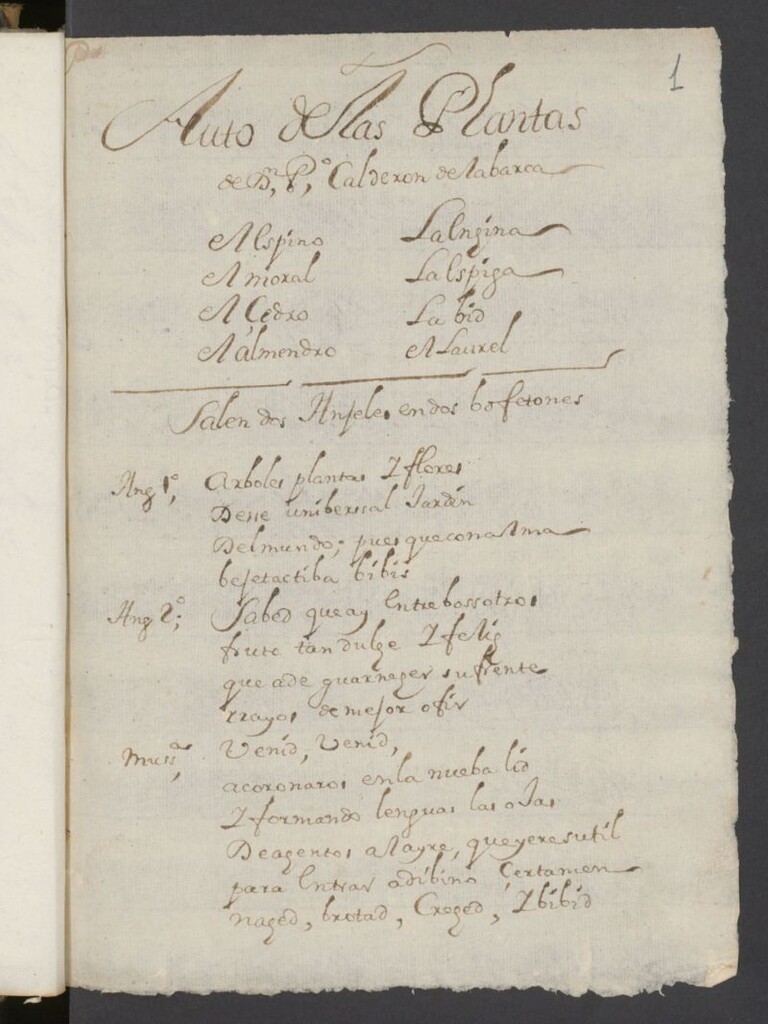 1
Auto de Las Plantas
de Dn, Po, Calderon de la barca
el espino La encina
el moral La espiga
el Cedro La bid
el almendro el Laurel
Salen dos Anjeles en dos bofetones
Ang 1o, Arboles plantas Y flores
Desse unibersal Jardin
Del mundo; pues que con alma
bejetactiba bibis
Ang 2o; Sabed que ay entre bossotros
fruto tan dulze Y feliz
que a de guarnezer su frente
rrayos de mejor ofir
Mussa, Venid, Venid,
a coronaros en la nueba lid
Y formando lenguas las oJas
De azentos al ayre, que yere sutil
para entrar a dibino Certamen
nazed, brotad, Crezed, Y bibid